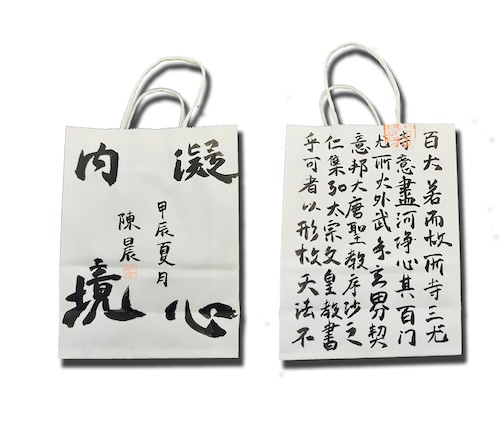 凝心
甲辰夏月
陳晨
内境
百大若而故所寺三尤
寺意盡河淨心其百门
九所大外武多玄界契
意邦大唐聖教序沙之
仁集弘太宗文皇教書
乎可者以形故天法不